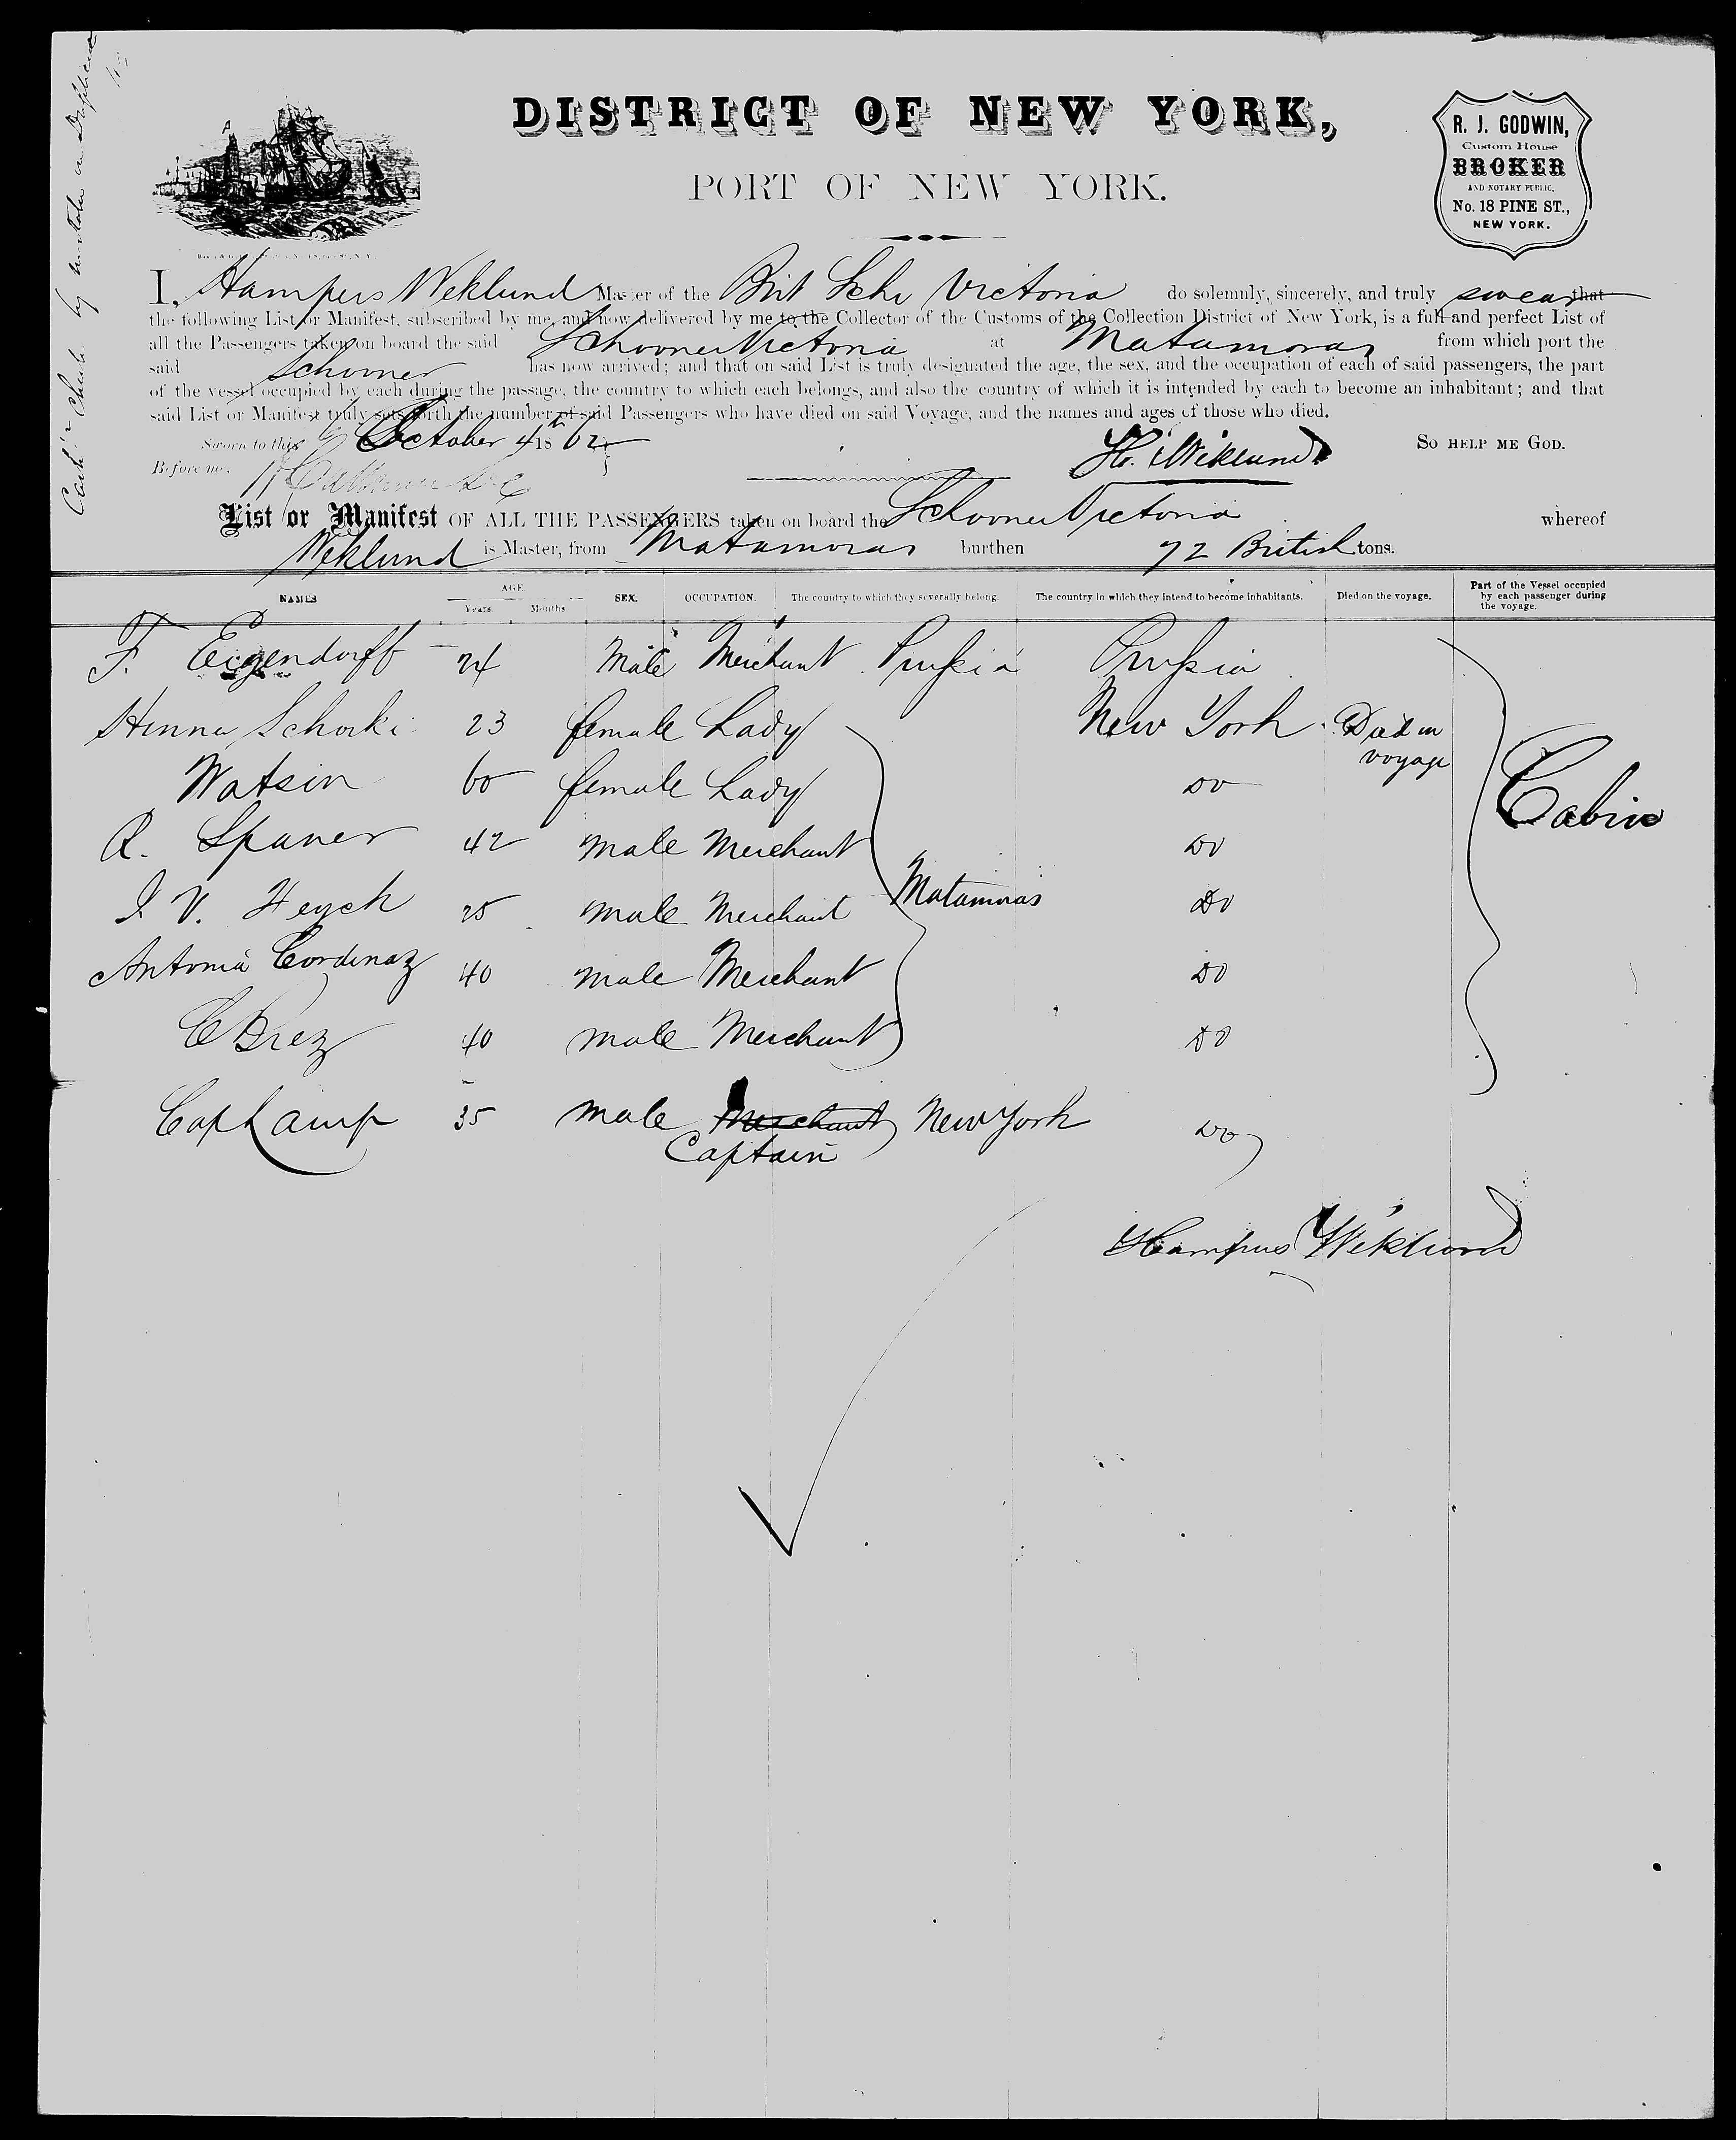 DISTRICT OF NEW YORK,
PORT OF NEW YORK.
R. J. GODWIN,
Custom House
BROKER
AND NOTARY PUBLIC,
No. 18 PINE ST.,
NEW YORK.
I, Hampus Weklund Master of the Brit Schr Victoria do solemnly, sincerely, and truly swear that
the following List or Manifest, subscribed by me, and now delivered by me to the Collector of the Customs of the Collection District of New York, is a full and perfect List of
all the Passengers taken on board the said Schooner Victoria at Matamoras from which port the
said Schooner has now arrived; and that on said List is truly designated the age, the sex, and the occupation of each of said passengers, the part
of the vessel occupied by each during the passage, the country to which each belongs, and also the country of which it is intended by each to become an inhabitant; and that
said List or Manifest truly sets forth the number of said Passengers who have died on said Voyage, and the names and ages of those who died.
Sworn to this October 4th 1862 H. Wiklund SO HELP ME GOD.
Before me,
List or Manifest OF ALL THE PASSENGERS taken on board the Schooner Victoria whereof
Weklund is Master, from Matamoras burthen 72 British tons.
NAMES AGE. Years. Months. SEX. OCCUPATION. The country to which they severally belong. The country in which they intend to become inhabitants. Died on the voyage. Part of the Vessel occupied by each passenger during the voyage.
F. Eigendorff 24 Male Merchant Prussia Prussia
Hinna Schorki 23 female Lady New York Died on voyage
Watsin 60 female Lady Do
R. Spaner 42 male Merchant Do
J. V. Heych 25 male Merchant Matamoras Do
Antonia Cordinaz 40 male Merchant Do
C Brez 40 male Merchant Do
Cabin
Capt Lamp 35 male Merchant New York Do
Captain
Hampus Wiklund